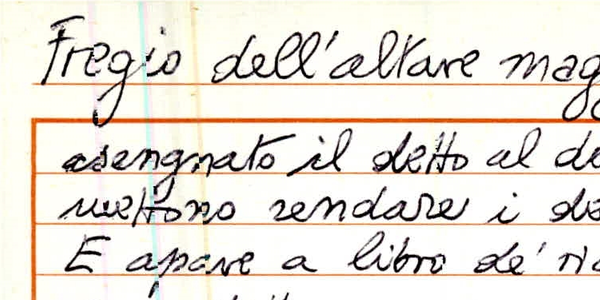 Fregio dell'altare mag
asengnato il detto al de
mettono rendare i de
E apare a libro de' ri